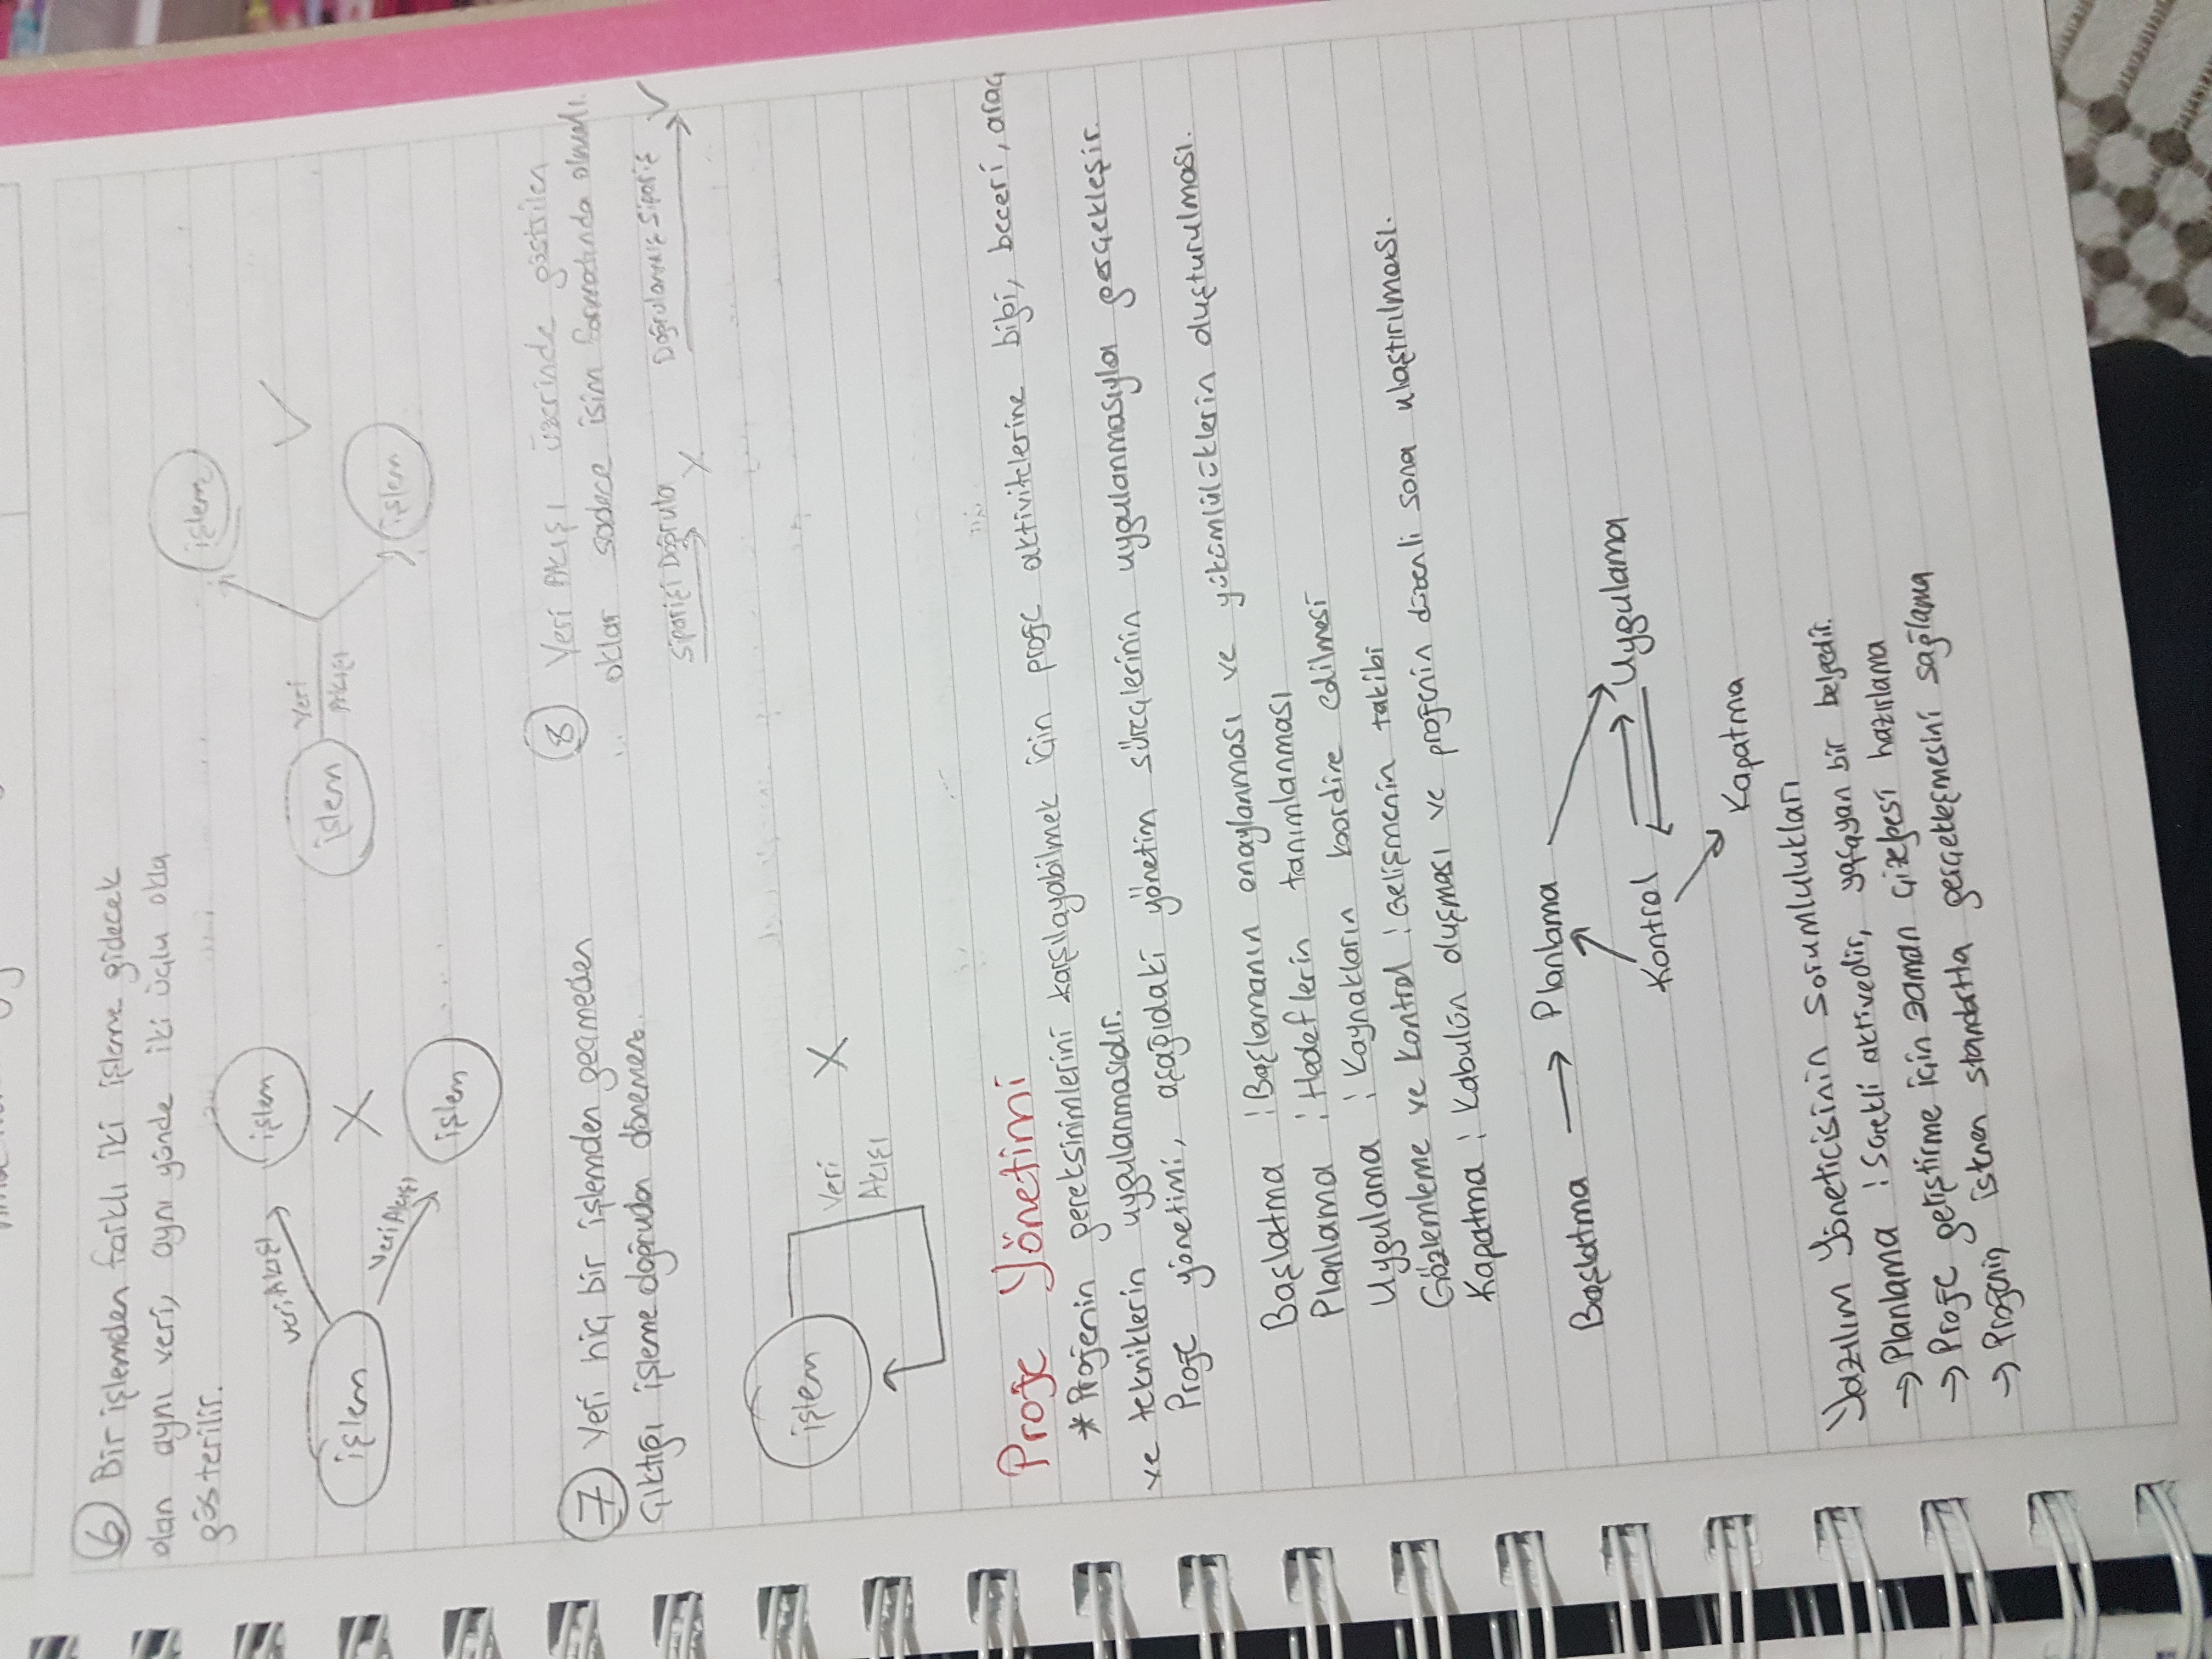 6 Bir işlemden farklı iki işleme gidecek
olan aynı veri, aynı yönde iki üçlu okla
gösterilir.
veri Akışı
işlem
işlem
X
veri Akışı
işlem
işlem
Veri
Akışı
işlem
✓
işlem
7 Veri hiç bir işlemden geçmeden
çıktığı işleme doğrudan dönemez.
işlem
Veri
Akışı
X
8 Veri Akışı üzerinde göstrilen
oklar sadece isim formatında olmalı.
Siparişi Doğrula X
Doğrulanmış Sipariş ✓
Proje Yönetimi
* Projenin gereksinimlerini karşılayabilmek için proje aktivitelerine bilgi, beceri, araç
ve tekniklerin uygulanmasıdır.
Proje yönetimi, aşağıdaki yönetim süreçlerinin uygulanmasıyla gerçekleşir.
Başlatma : Başlamanın onaylanması ve yükümlülüklerin oluşturulması.
Planlama : Hedeflerin tanımlanması
Uygulama : Kaynakların koordine edilmesi
Gözlemleme ve kontrol : Gelişmenin takibi
Kapatma : Kabulün oluşması ve projenin düzenli sona ulaştırılması.
Başlatma → Planlama
Kontrol
Uygulama
Kapatma
Yazılım Yöneticisinin Sorumlulukları
→ Planlama : Sürekli aktivedir, yaşayan bir belgedir.
→ Proje geliştirme için zaman çizelgesi hazırlama
→ Projenin istenen standartta gerçekleşmesini sağlama